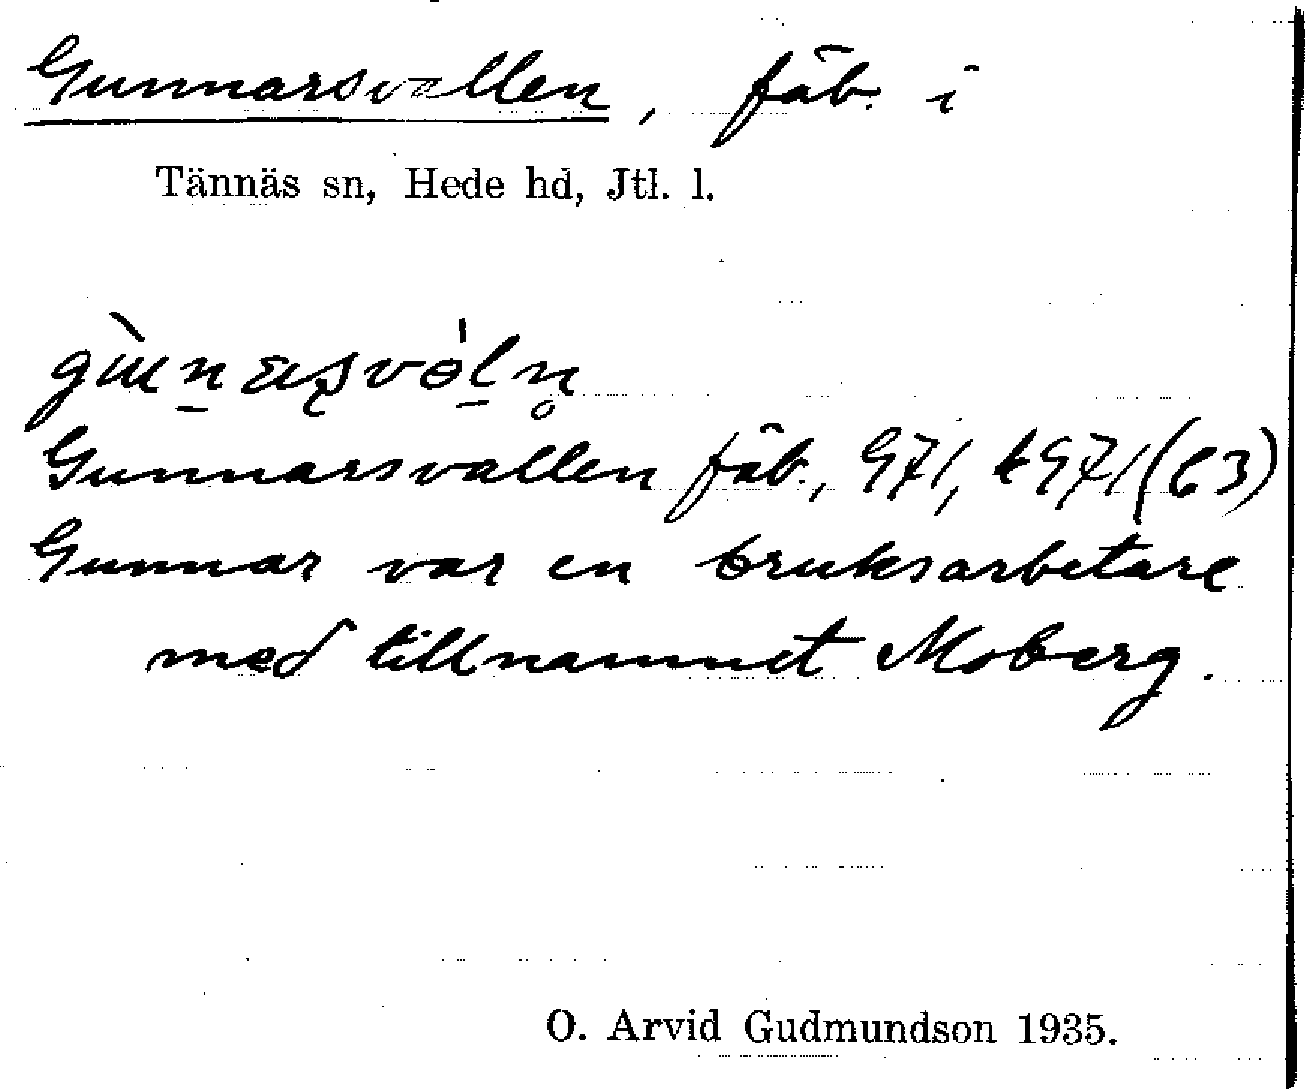 Gunnarsvallen, fäb. i
Tännäs sn, Hede hd, Jtl. l.
Gunnarsvallen fäb.,
Gunnar var en bruksarbetare
med tillnamnet Moberg.
O. Arvid Gudmundson 1935.